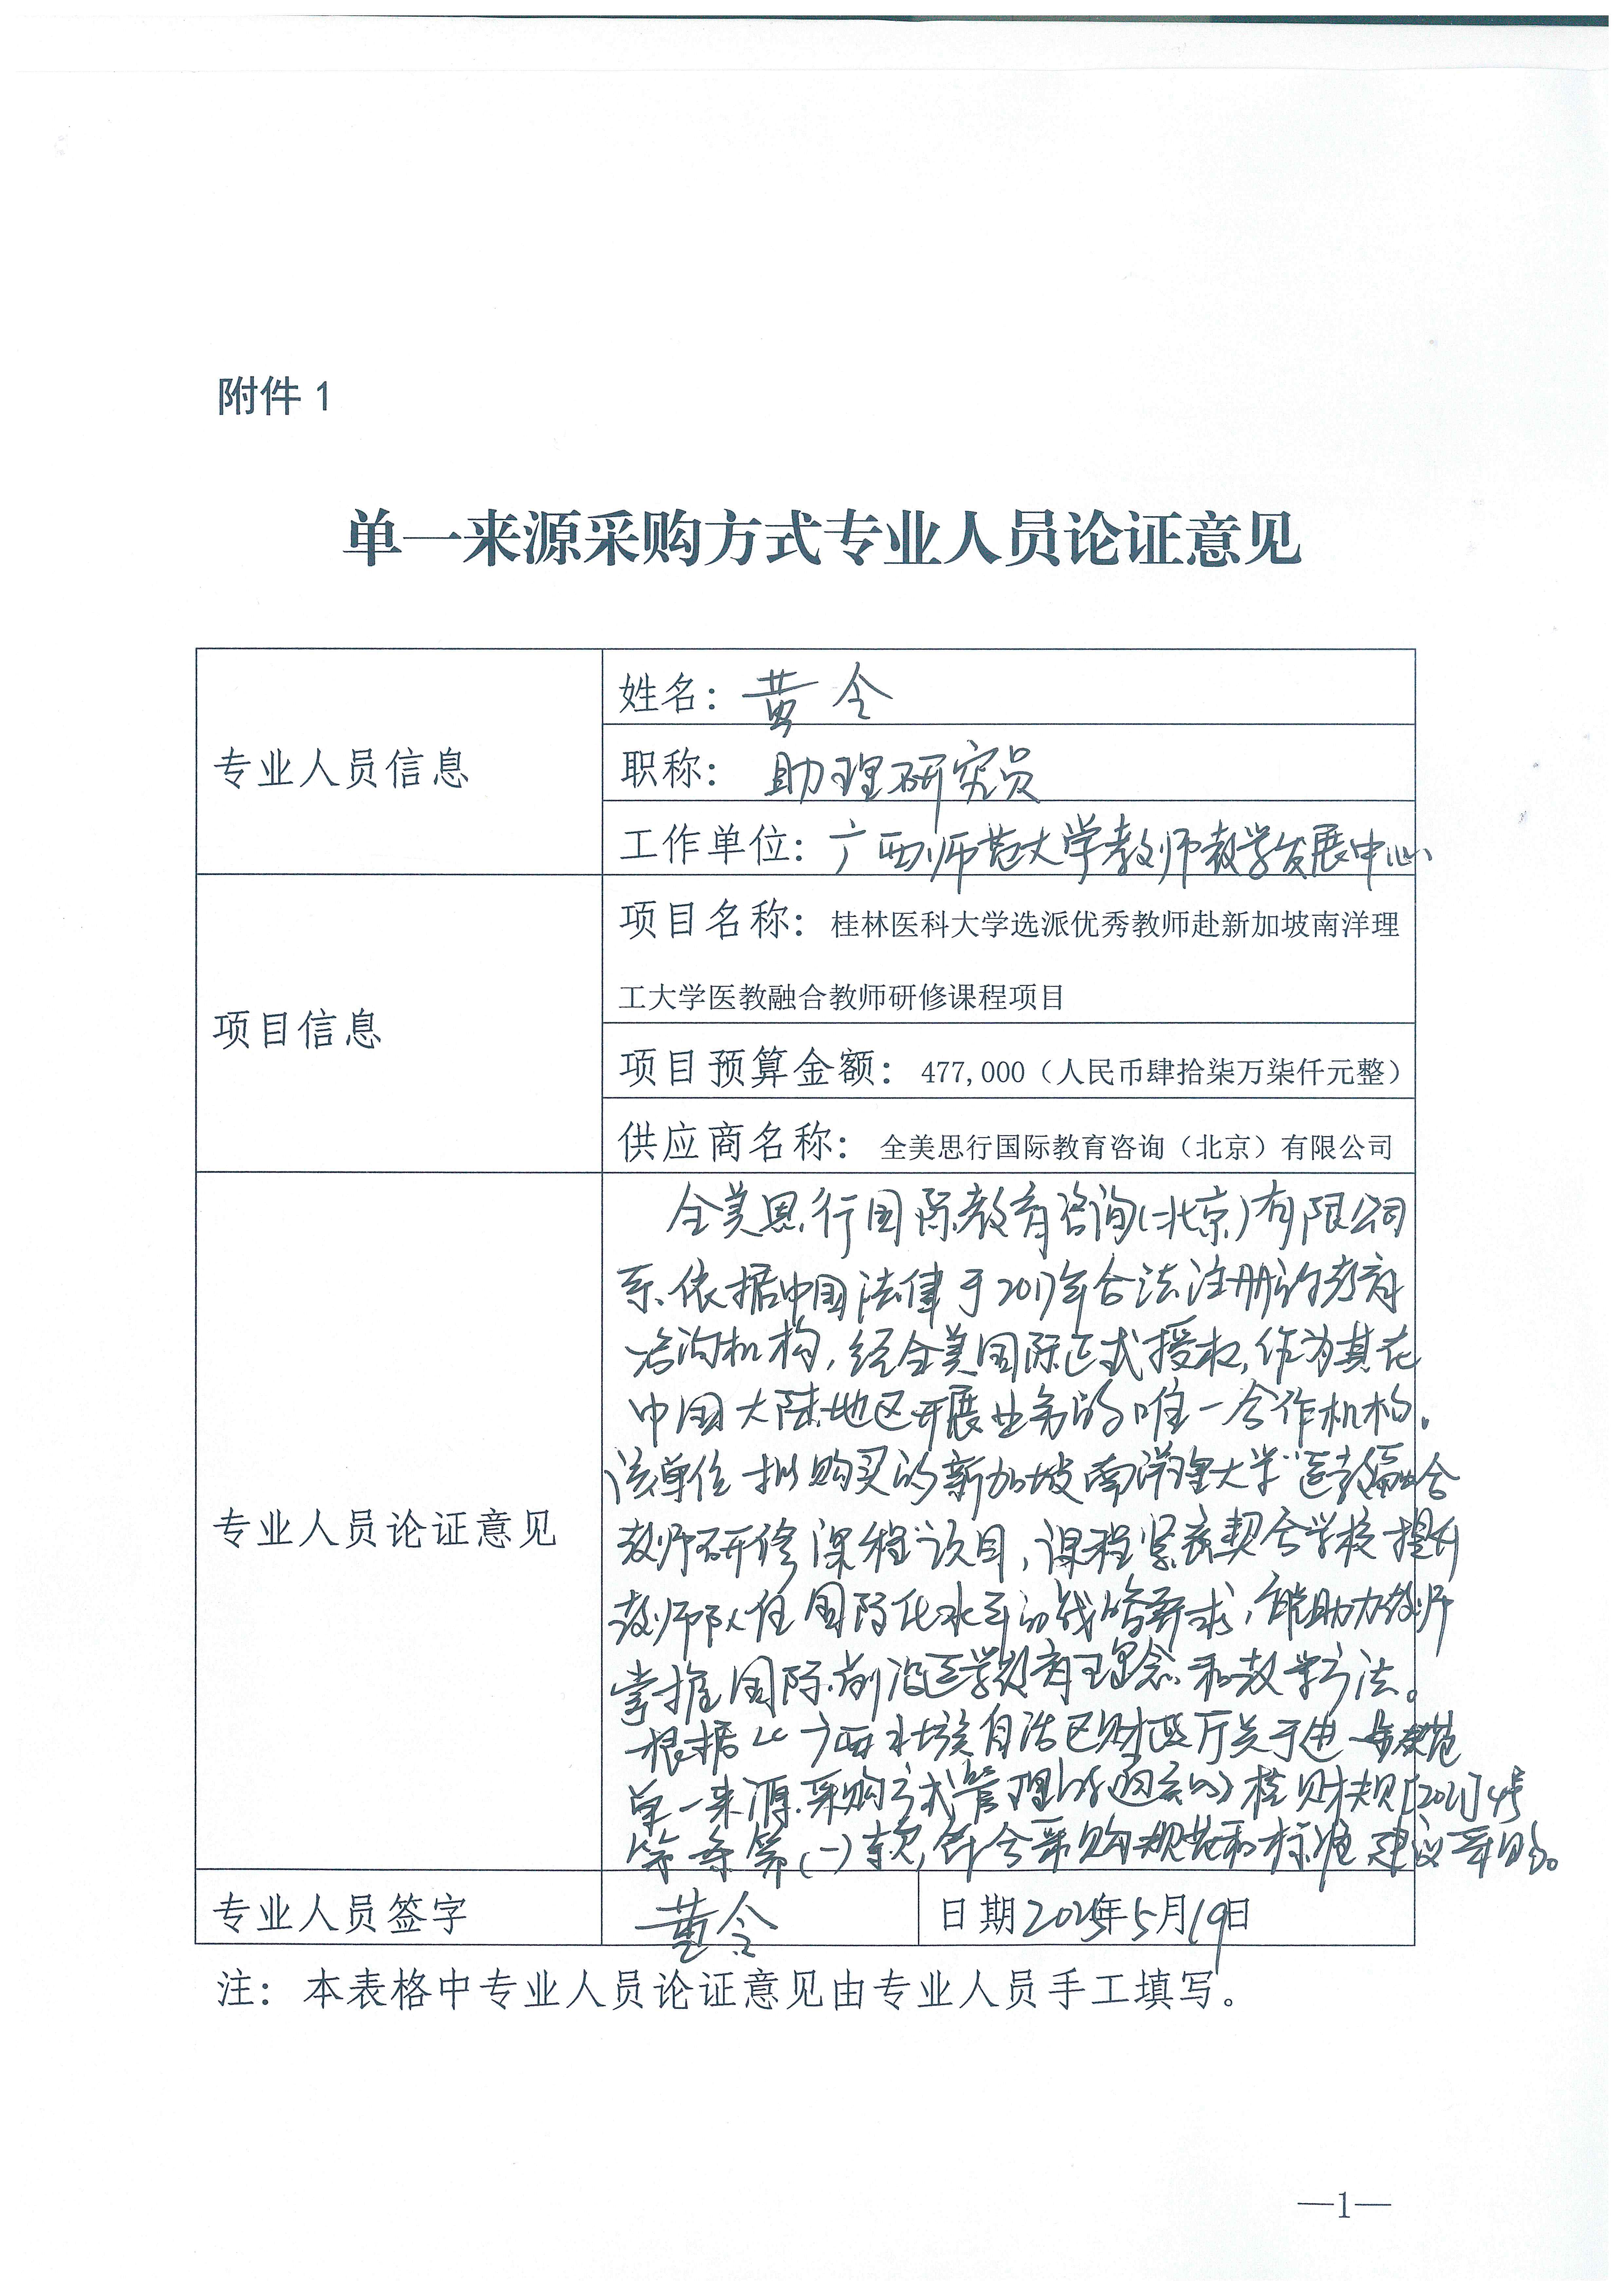 附件 1
单一来源采购方式专业人员论证意见
专业人员信息
姓名：黄令
职称：助理研究员
工作单位：广西师范大学教师教学发展中心
项目信息
项目名称：桂林医科大学选派优秀教师赴新加坡南洋理
工大学医教融合教师研修课程项目
项目预算金额：477,000（人民币肆拾柒万柒仟元整）
供应商名称：全美思行国际教育咨询（北京）有限公司
专业人员论证意见
全美思行国际教育咨询(北京)有限公司
系依据中国法律于2017年合法注册的教育
咨询机构，经全美国际正式授权，作为其在
中国大陆地区开展业务的唯一合作机构。
该单位拟购买的新加坡南洋理大学"医教融合
教师研修课程"项目，课程紧密契合学校提升
教师队伍国际化水平的战略需求，能助力教师
掌握国际前沿医学教育理念和教学方法。
根据《广西壮族自治区财政厅关于进一步规范
单一来源采购方式管理的通知》桂财规[2021]4号
第 条第(一)款，符合采购规范和标准 建议采购。
专业人员签字
黄令
日期2025年5月19日
注：本表格中专业人员论证意见由专业人员手工填写。
—1—